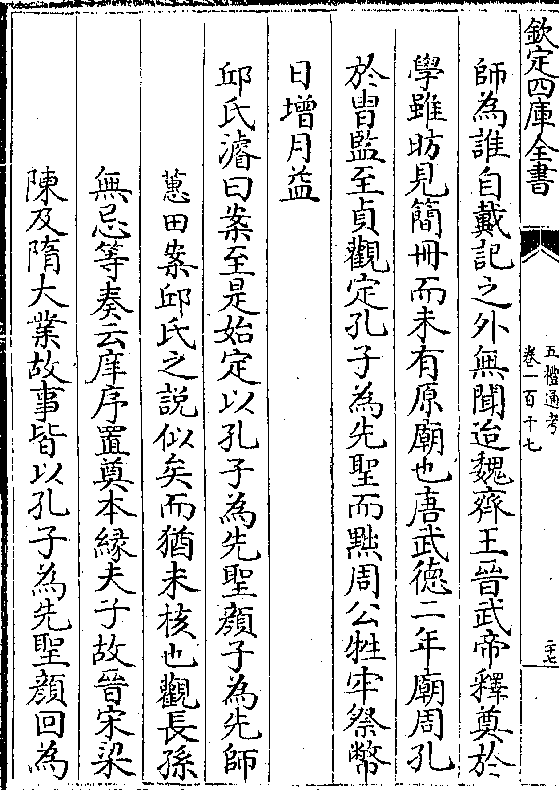 欽定四庫全書
五禮通考
卷一百十七
二七
師為誰自戴記之外無聞迨魏齊王晉武帝釋奠於
學雖昉見簡冊而未有原廟也唐武德二年廟周孔
於胄監至貞觀定孔子為先聖而黜周公牲牢祭幣
日增月益
邱氏濬曰案至是始定以孔子為先聖顏子為先師
蕙田案邱氏之說似矣而猶未核也觀長孫
無忌等奏云庠序置奠本緣夫子故晉宋梁
陳及隋大業故事皆以孔子為先聖顏回為